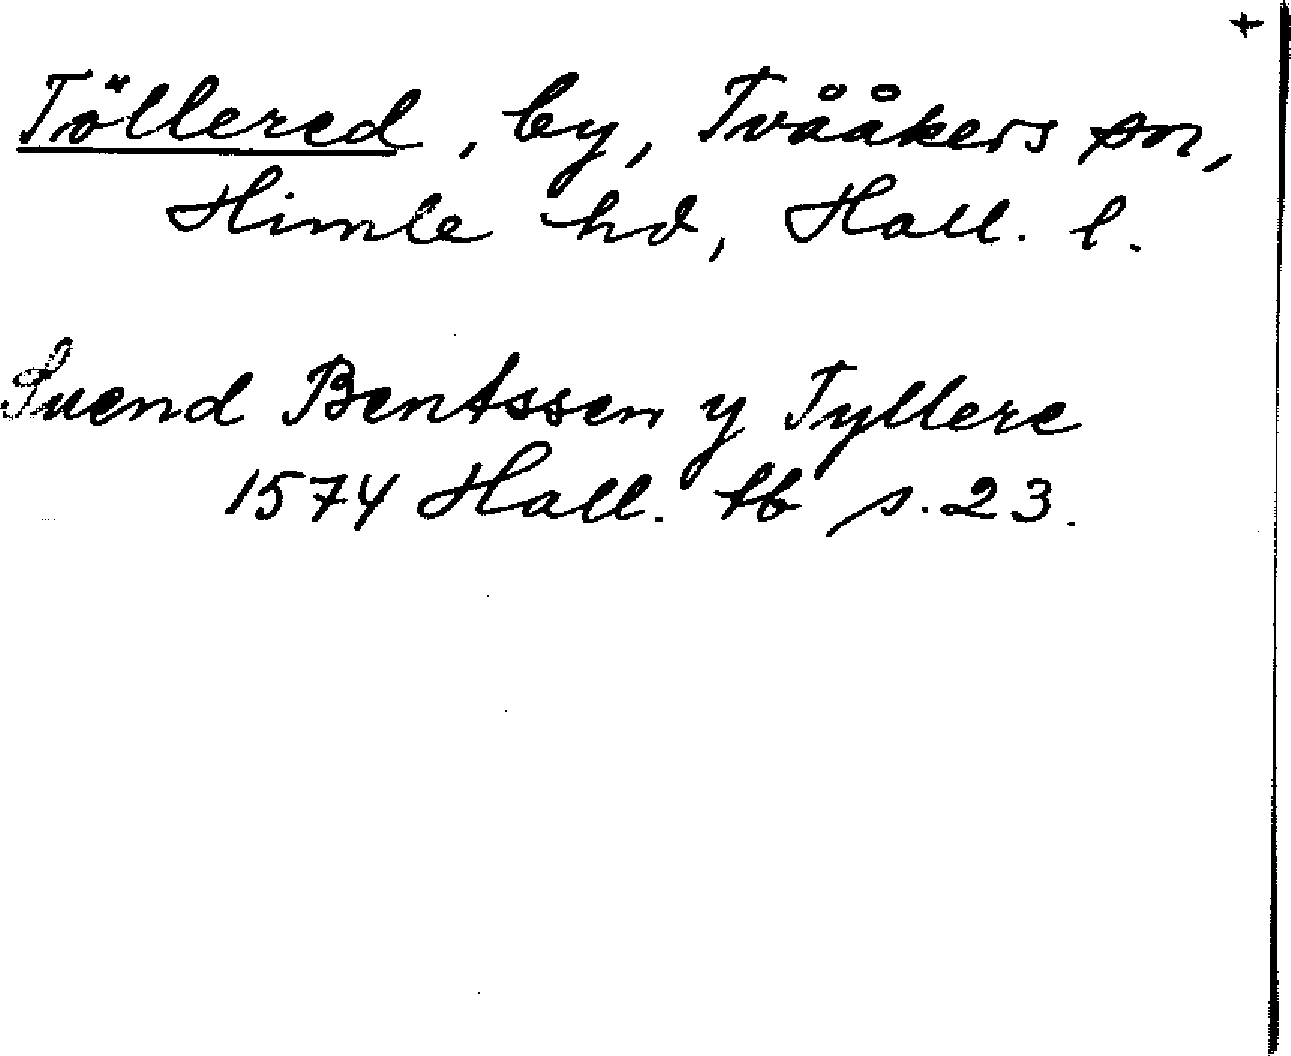 +
Töllered, by, Tvååkers sn,
Himle hd, Hall. l.
Suend Bentssen y Tyllere
1574 Hall. tb s. 23.